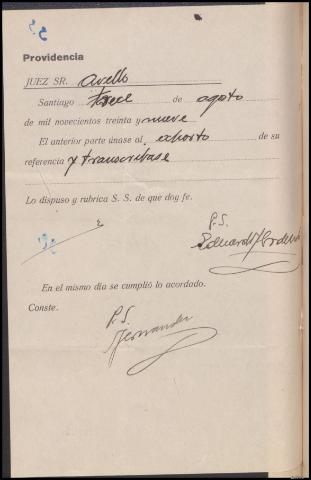 Providencia
JUEZ SR. Avello
Santiago trece de agosto
de mil novecientos treinta y nueve
El anterior parte únase al exhorto de su
referencia y transcríbase
Lo dispuso y rubrica S. S. de que doy fe.
P.S.
Eduardo
En el mismo día se cumplió lo acordado.
Conste.
P.S.
Fernandez